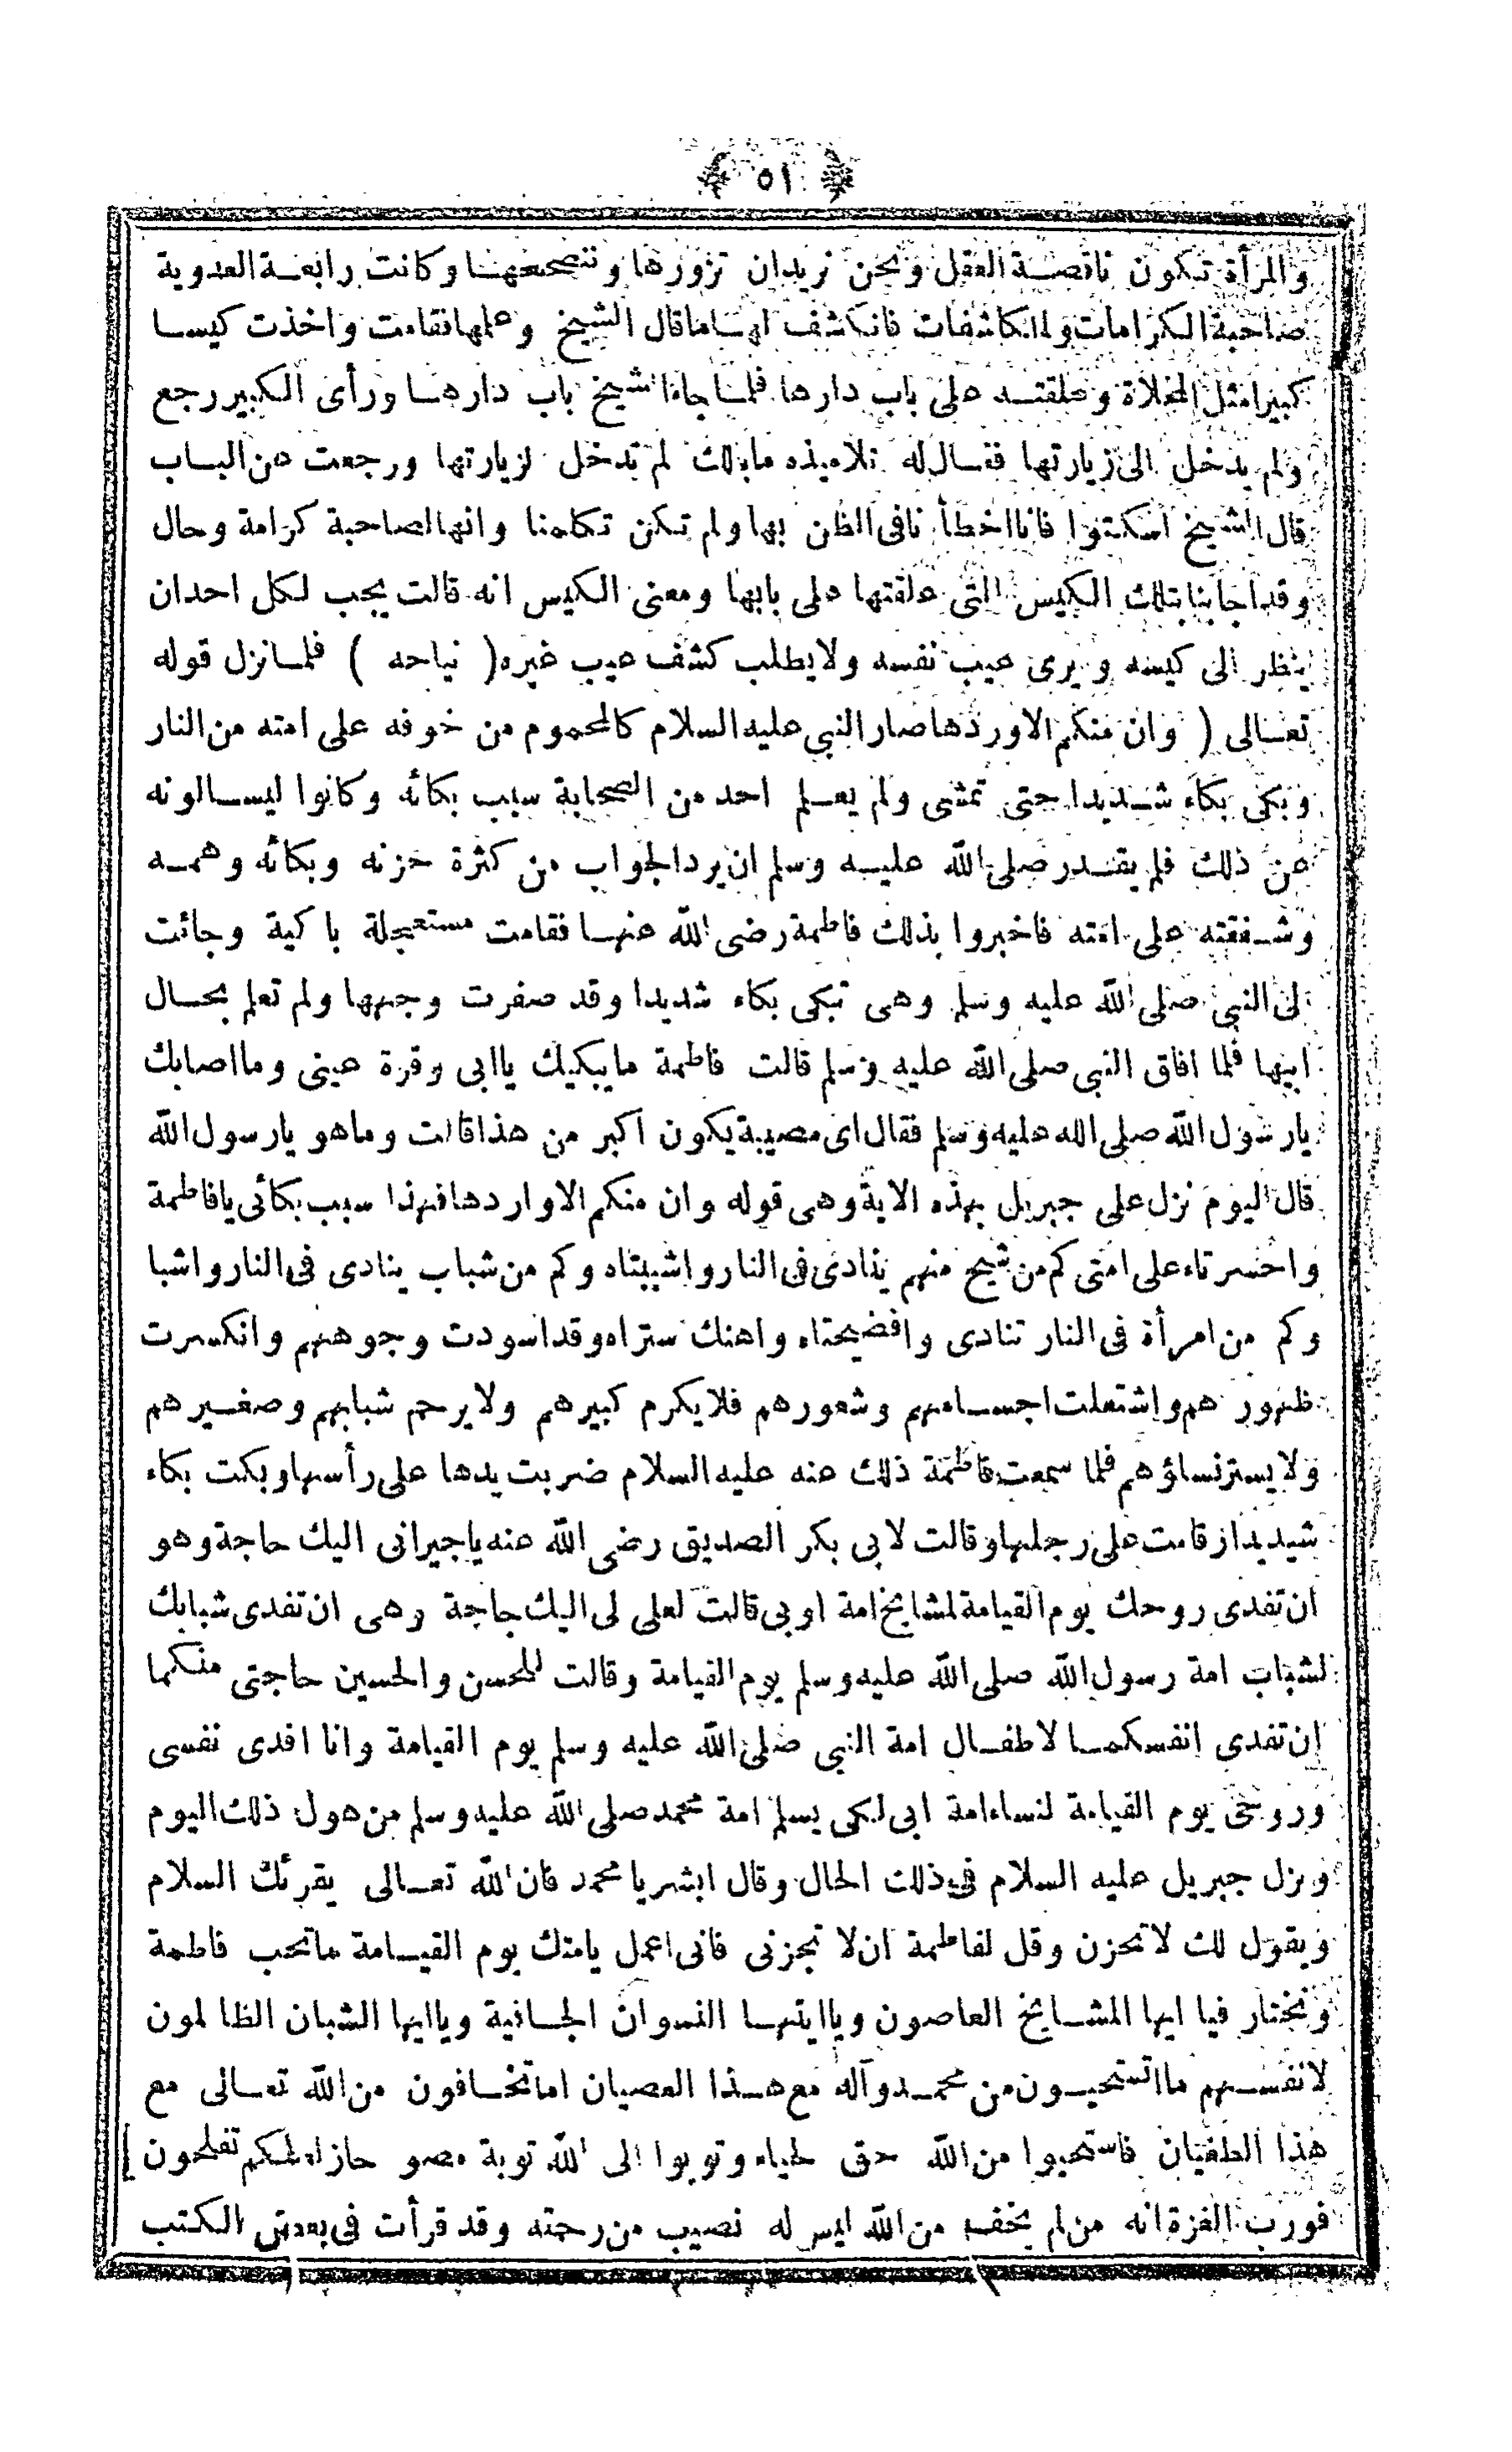 ﴿ ٥١ ﴾
والمرأة تكون ناقصة العقل ونحن نريد ان نزورها وننصحها وكانت رابعة العدوية
صاحبة الكرامات والمكاشفات فانكشف لها ما قال الشيخ وعلمها فقامت واخذت كيسا
كبيرا مثل المخلاة وعلقته على باب دارها فلما جاء الشيخ باب دارها ورأى الكبير رجع
ولم يدخل الى زيارتها فقال له تلاميذه مابالك لم تدخل لزيارتها ورجعت من الباب
قال الشيخ اسكتوا فانا اخطأ نافى الظن بها ولم تكن تكلمنا وانها لصاحبة كرامة وحال
وقد اجابنا بتلك الكيس التى علقتها على بابها ومعنى الكيس انه قالت يجب لكل احد ان
ينظر الى كيسه ويرى عيب نفسه ولا يطلب كشف عيب غيره ( نياحه ) فلما نزل قوله
تعالى ( وان منكم الاوردها صار النبي عليه السلام كالمحموم من خوفه على امته من النار
وبكى بكاء شديدا حتى تمشى ولم يعلم احد من الصحابة سبب بكائه وكانوا ليسالونه
عن ذلك فلم يقدر صلى الله عليه وسلم ان يرد الجواب من كثرة حزنه وبكائه وهمه
وشفقته على امته فاخبروا بذلك فاطمة رضى الله عنها فقامت مستعجلة باكية وجائت
لى النبى صلى الله عليه وسلم وهى تبكى بكاء شديدا وقد صفرت وجهها ولم تعلم بحال
ابيها فلما افاق النبى صلى الله عليه وسلم قالت فاطمة مايبكيك ياابى وقرة عينى وما اصابك
يارسول الله صلى الله عليه وسلم فقال اى مصيبة يكون اكبر من هذا قالت وماهو يارسول الله
قال اليوم نزل على جبريل بهذه الاية وهى قوله وان منكم الا واردها فهذا سبب بكائى يافاطمة
واحسرتاه على امتى كم من شيخ منهم ينادى فى النار واشيبتاه وكم من شباب ينادى فى النار واشبا
وكم من امرأة فى النار تنادى وافضيحتاه واهتك ستراه وقد اسودت وجوههم وانكسرت
ظهورهم واشتعلت اجسامهم وشعورهم فلا يكرم كبيرهم ولا يرحم شبابهم وصغيرهم
ولا يستر نساؤهم فلما سمعت فاطمة ذلك عنه عليه السلام ضربت يدها على رأسها وبكت بكاء
شيديدا ز قامت على رجليها وقالت لابى بكر الصديق رضى الله عنه ياجيرانى اليك حاجة وهو
ان تفدى روحك يوم القيامة لمشايخ امة ابى قالت لعلى لى اليك حاجة وهى ان تفدى شبابك
لشباب امة رسول الله صلى الله عليه وسلم يوم القيامة وقالت للحسن والحسين حاجتى منكما
ان تفدى انفسكما لاطفال امة النبى صلى الله عليه وسلم يوم القيامة وانا افدى نفسى
وروحى يوم القيامة لنساء امة ابى لكى يسلم امة محمد صلى الله عليه وسلم من هول ذلك اليوم
ونزل جبريل عليه السلام فى ذلك الحال وقال ابشر يا محمد فان الله تعالى يقرئك السلام
ويقول لك لا تحزن وقل لفاطمة ان لا تحزنى فانى اعمل يامتك يوم القيامة ماتحب فاطمة
ونختار فيا ايها المشايخ العاصون وياايتها النسوان الجانية وياايها الشبان الظالمون
لانفسهم ماا تستحيون من محمد وآله مع هذا العصيان اما تخافون من الله تعالى مع
هذا الطغيان فاستحيوا من الله حق لحياء وتوبوا الى الله توبة مصو حازا لعلكم تفلحون
فورب العزة انه من لم يخف من الله ليس له نصيب من رحمته وقد قرأت فى بعض الكتب